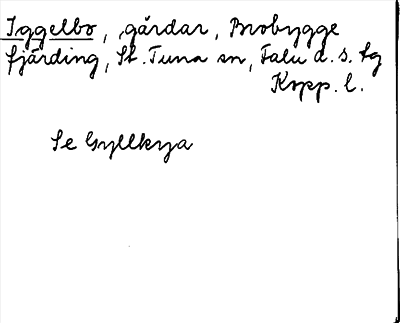 Iggelbo, gårdar, Brobygge
fjärding, St. Tuna sn, Falu d. s. tg
Kopp. l.
Se Gyllkya